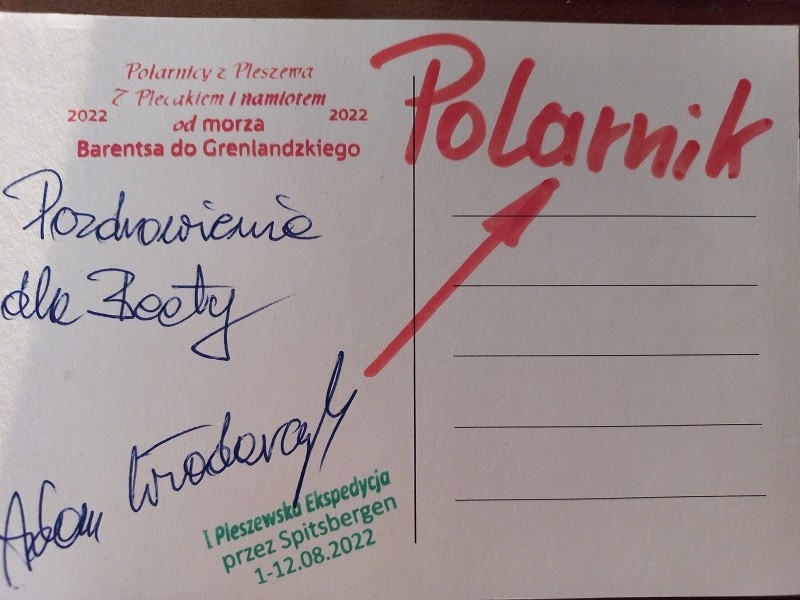 Polarnicy z Pleszewa
Z Plecakiem i namiotem
2022 od morza 2022
Barentsa do Grenlandzkiego
Polarnik
Pozdrowienia
dla Beaty
Adam Włodarczyk
I Pleszewska Ekspedycja
przez Spitsbergen
1-12.08.2022